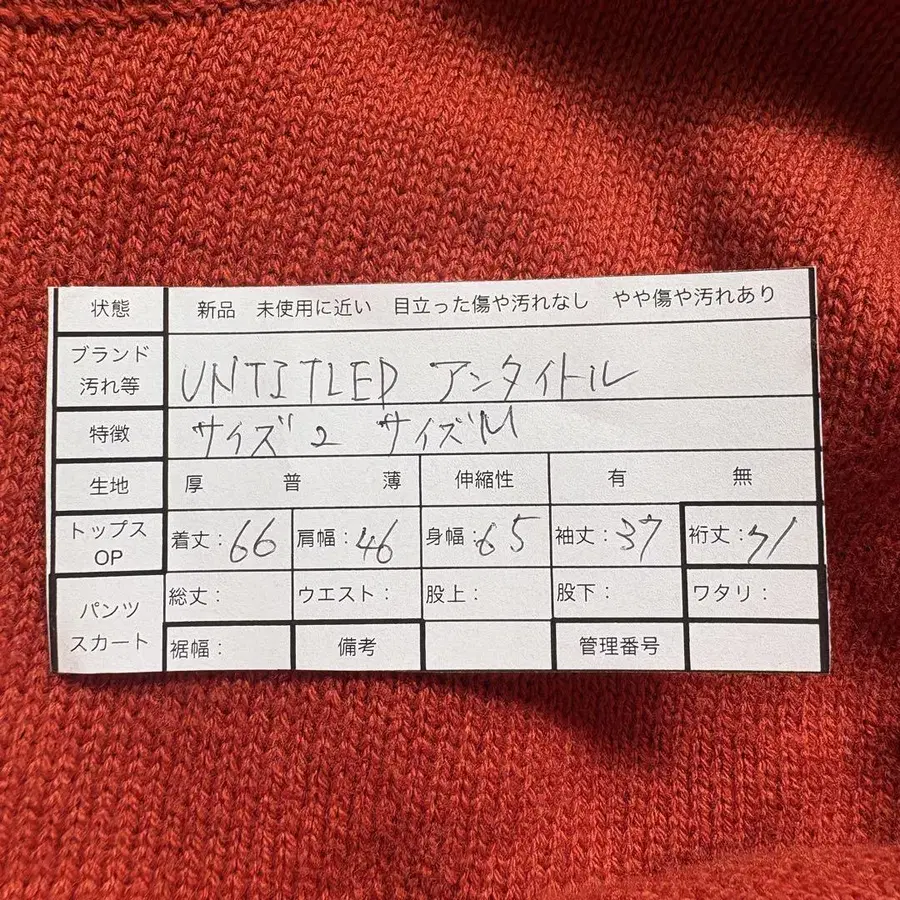 状態 新品 未使用に近い 目立った傷や汚れなし やや傷や汚れあり
ブランド
汚れ等 UNTITLED アンタイトル
特徴 サイズ2 サイズM
生地 厚 普 薄 伸縮性 有 無
トップス
OP 着丈:66 肩幅:46 身幅:65 袖丈:37 裄丈:
パンツ
スカート 総丈: ウエスト: 股上: 股下: ワタリ:
裾幅: 備考 管理番号